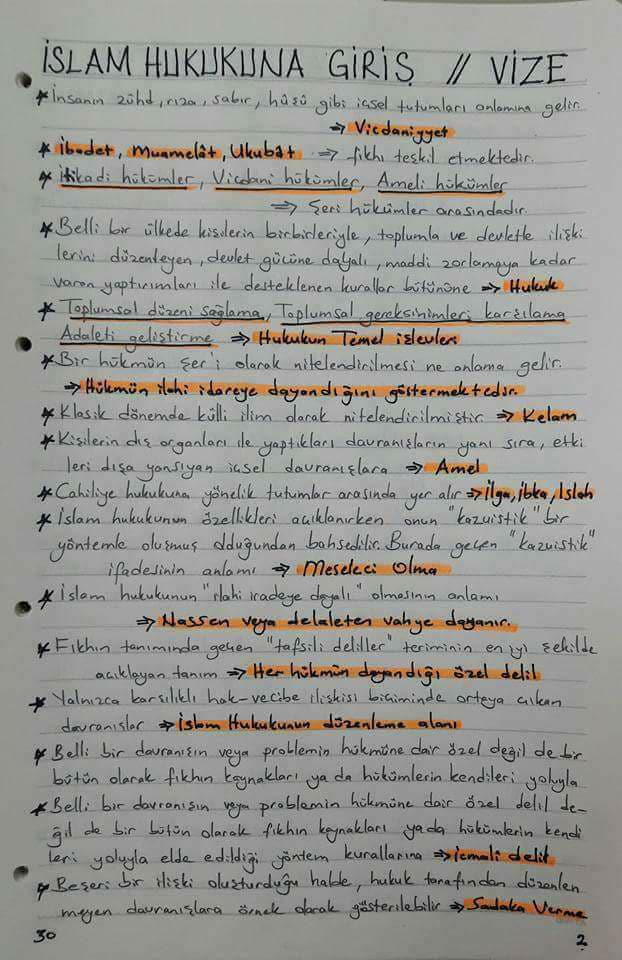 İSLAM HUKUKUNA GİRİŞ // VİZE
* İnsanın zühd, rıza, sabır, hûşû gibi içsel tutumları anlamına gelir.
⇒ Vicdaniyyet
* İbadet, Muamelât, Ukubât ⇒ fıkhı teşkil etmektedir.
* İtikadi hükümler, Vicdani hükümler, Ameli hükümler
⇒ Şeri hükümler arasındadır.
* Belli bir ülkede kişilerin birbirleriyle, toplumla ve devletle ilişki
lerini düzenleyen, devlet gücüne dayalı, maddi zorlamaya kadar
varan yaptırımları ile desteklenen kurallar bütününe ⇒ Hukuk
* Toplumsal düzeni sağlama, Toplumsal gereksinimleri karşılama
Adaleti geliştirme ⇒ Hukukun Temel işlevleri
* Bir hükmün Şer'i olarak nitelendirilmesi ne anlama gelir.
⇒ Hükmün ilahi idareye dayandığını göstermektedir.
* Klasik dönemde külli ilim olarak nitelendirilmiştir. ⇒ Kelam
* Kişilerin dış organları ile yaptıkları davranışların yanı sıra, etki
leri dışa yansıyan içsel davranışlara ⇒ Amel
* Cahiliye hukukuna yönelik tutumlar arasında yer alır ⇒ ilga, ibka, Islah
* İslam hukukunun özellikleri açıklanırken onun "kazuistik" bir
yöntemle oluşmuş olduğundan bahsedilir. Burada geçen "kazuistik"
ifadesinin anlamı ⇒ Meseleci Olma
* İslam hukukunun "ilahi iradeye dayalı" olmasının anlamı
⇒ Nassen veya delaleten vahye dayanır.
* Fıkhın tanımında geçen "tafsili deliller" teriminin en iyi şekilde
açıklayan tanım ⇒ Her hükmün dayandığı özel delil
* Yalnızca karşılıklı hak-vecibe ilişkisi biçiminde ortaya çıkan
davranışlar ⇒ İslam Hukukunun düzenleme alanı
* Belli bir davranışın veya problemin hükmüne dair özel değil de bir
bütün olarak fıkhın kaynakları ya da hükümlerin kendileri yoluyla
* Belli bir davranışın veya problemin hükmüne dair özel delil de-
ğil de bir bütün olarak fıkhın kaynakları yada hükümlerin kendi
leri yoluyla elde edildiği yöntem kurallarına ⇒ icmali delil
* Beşeri bir ilişki oluşturduğu halde, hukuk tarafından düzenlen
meyen davranışlara örnek olarak gösterilebilir ⇒ Sadaka Verme
30
2